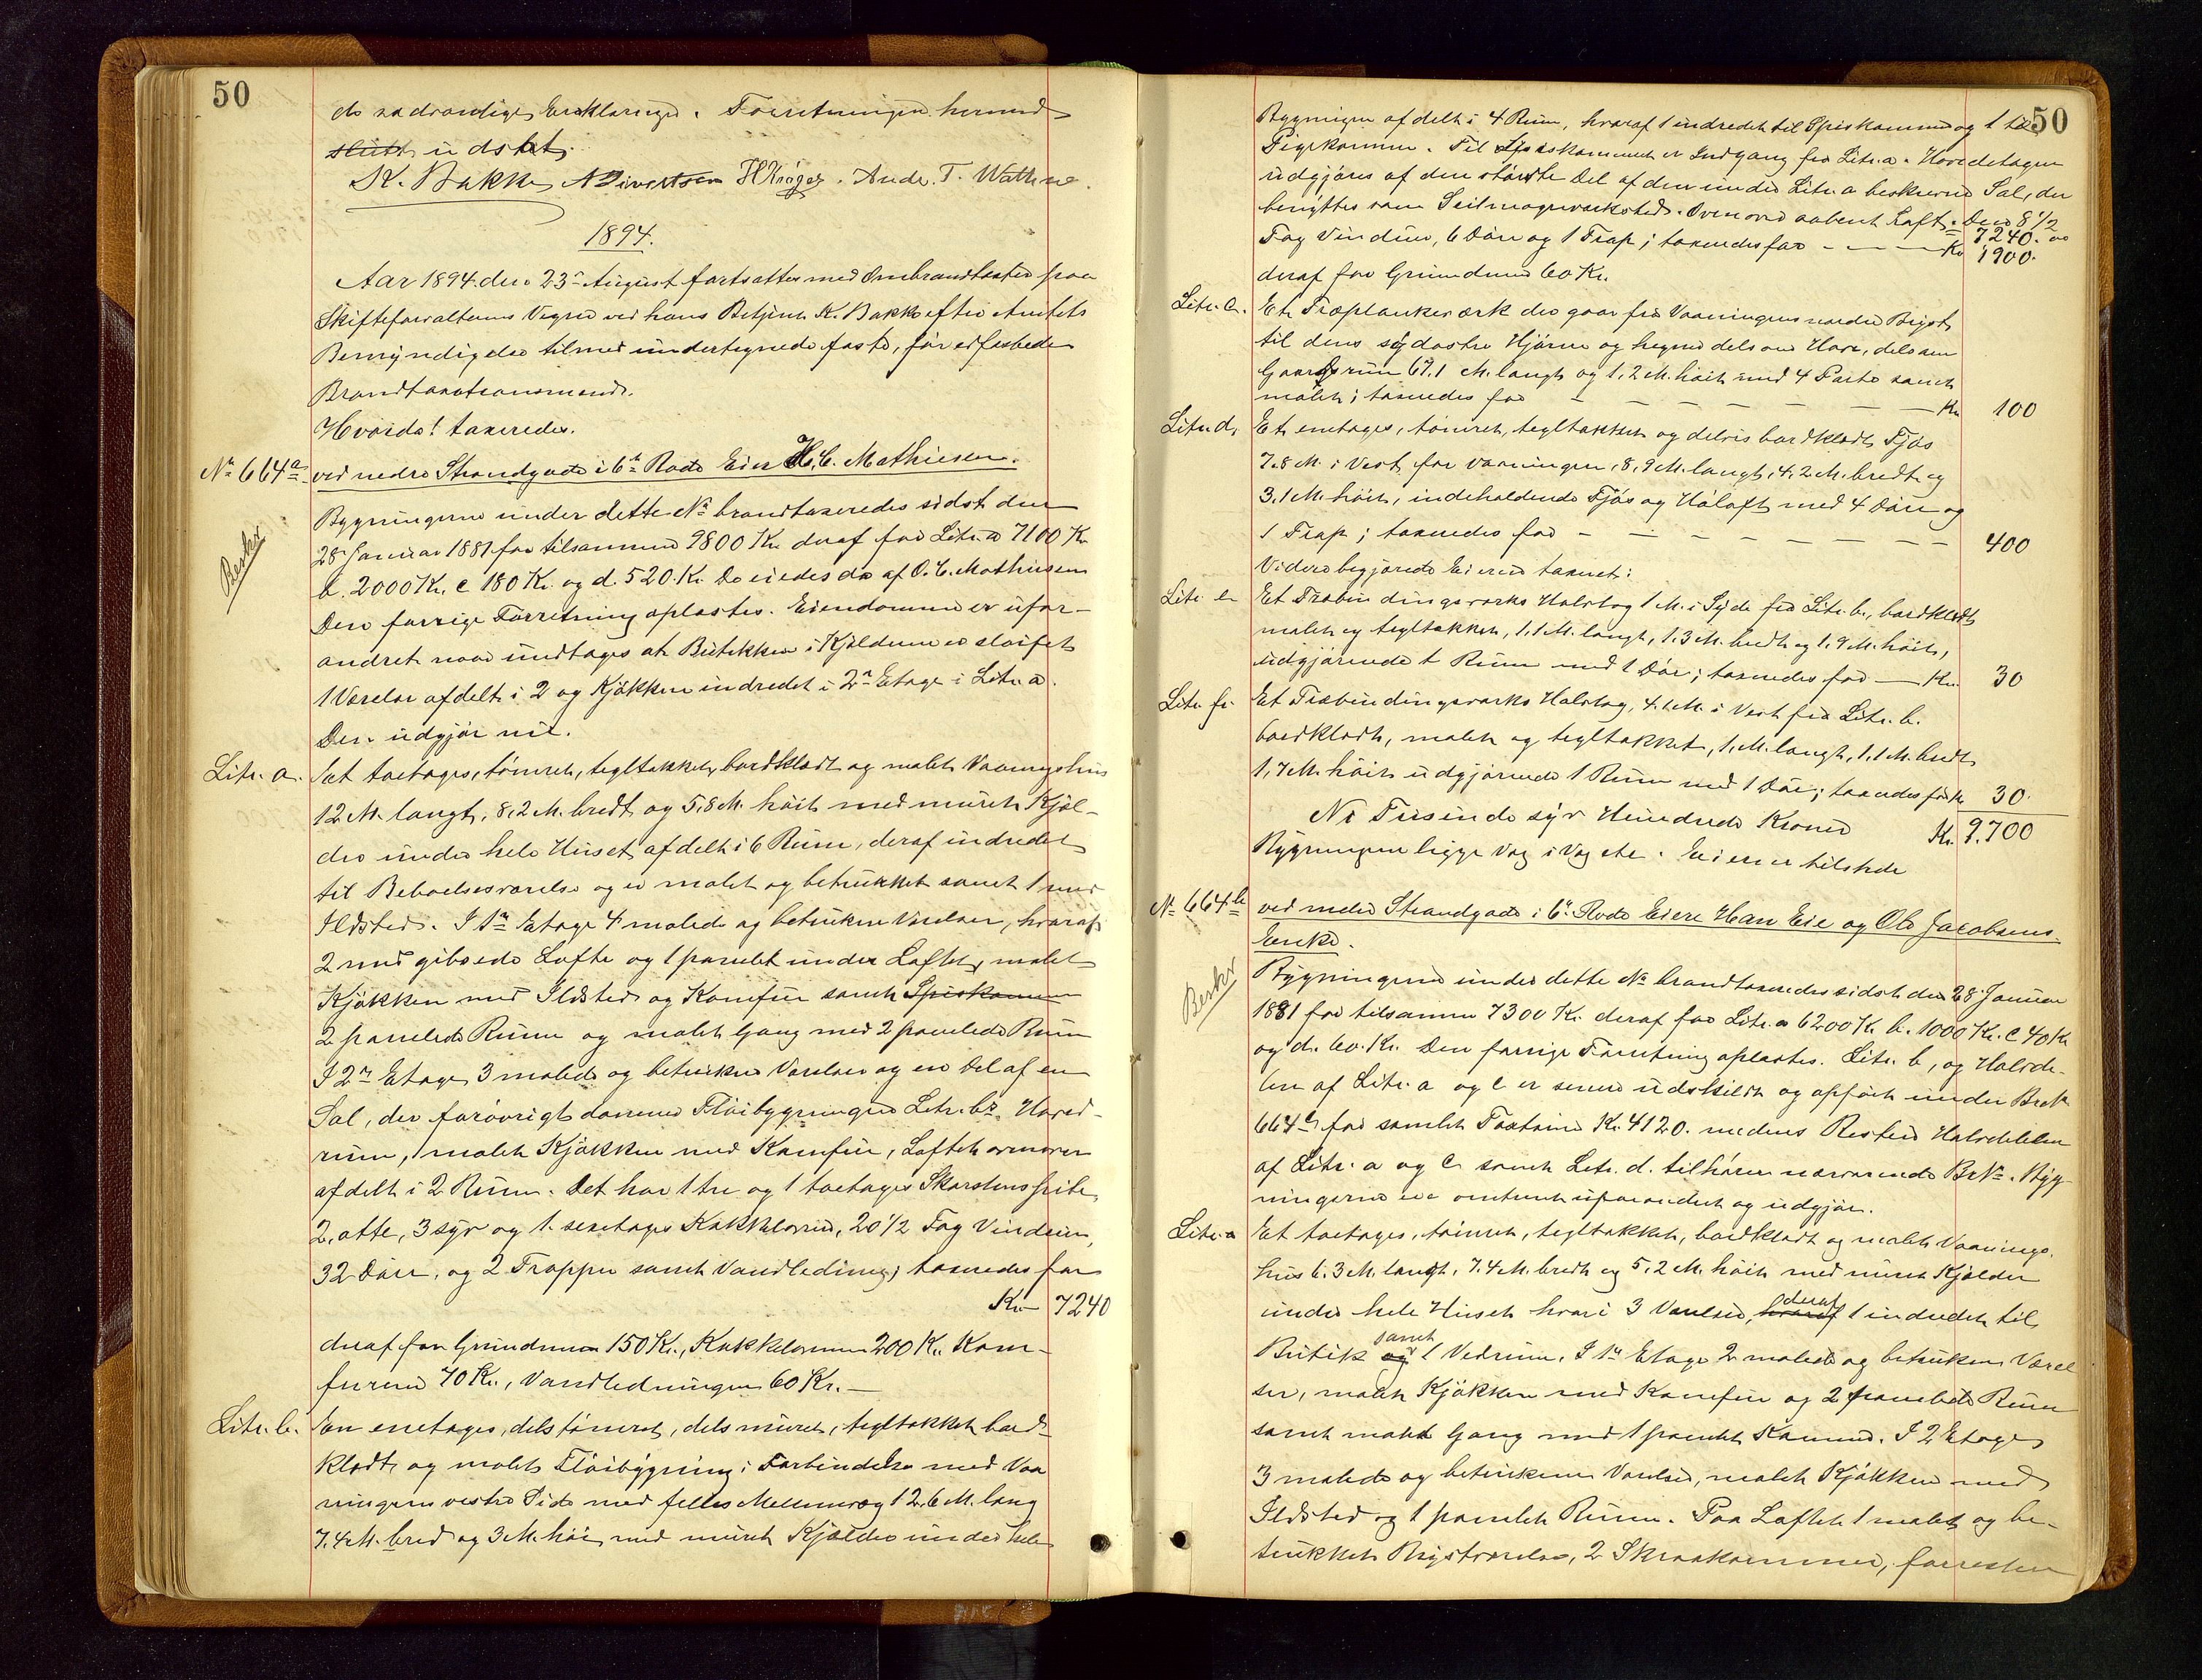 50
de nødvendige Erklæringer. Forretningen hermed
slutt udstet.
K. Bakke N Sivertsen H Krøger. Andr. T. Wathne.
1894.
Aar 1894 den 23de August fortsattes med Ombrandtaxter paa
Skifteforvalterens Vegne ved hans Betjent K. Bakke efter Amtets
Bemyndigelse tilmed undertegnede faste, før edfæstede
Brandtaxationsmænd.
Hvorda! taxeredes.
No 664a ved nedre Strandgade i 6te Rode Eier H. C. Mathiesen.
Besku
Bygningerne under dette No brandtaxeredes sidst den
28 Januar 1881 for tilsammen 9800 Kr. deraf for Litr. a 7100 Kr
b. 2000 Kr. c 180 Kr. og d. 520. Kr. De eiedes da af O. C. Mathiesen
Den forrige Forretning oplæstes. Eiendommen er ufor-
andret naar undtages at Butikken i Kjælderen er sløifet
1 Værelse afdelt i 2 og Kjøkken indredet i 2n Etage i Litr. a.
Den udgjør nu.
Litr. a. Et toetages, tømret, tegltækket, bordklædt og malet Vaaningshus
12 M. langt, 8,2 M. bredt og 5,8 M. høit med muret Kjæl-
der under hele Huset afdelt i 6 Rum, deraf indredet
til Beboelsesværelse og er malet og betrukket samt 1 med
Ildsted. I 1n Etage 4 malede og betrukne Værelser, hvoraf
2 med gibsede Lofte og 1 panelet under Loftet, malet
Kjøkken med Ildsted og Komfur samt Spiskammer
2 panelede Rum og malet Gang med 2 panelede Rum
I 2n Etage 3 malede og betrukne Værelser og en Del af en
Sal, der forøvrigt danner Fløibygningen Litr. b's Hoved-
rum, malet Kjøkken med Komfur, Loftet ovenover
afdelt i 2 Rum. Det har 1 tre og 1 toetages Skorstenspibe,
2, otte, 3 syv og 1. sexetages Kakkelovne, 20 1/2 Fag Vinduer,
32 Døre, og 2 Trapper samt Vandledning; taxeredes for
Kr 7240
deraf for Grundmur 150 Kr., Kakkelovnene 200 Kr. Kom-
furene 70 Kr., Vandledningen 60 Kr. —
Litr. b. En enetages, dels tømret, dels muret, tegltækket bord-
klædt og malet Fløibygning i Forbindelse med Vaa
ningens vestre Side med fælles Mellemvæg 12,6 M. lang
7,4 M. bred og 3 M. høi med muret Kjælder under hele
50
Bygningen afdelt i 4 Rum, hvoraf 1 indredet til Spiskammer og 1 til
Pigekammer. Til Spiskammeret er Indgang fra Litr. a. Hovedetagen
udgjøres af den største Del af den under Litr. a beskrevne Sal, der
benyttes som Seilmagerværksted. Ovenover aabent Loft. Den 8 1/2
Fag Vinduer, 6 Døre og 1 Trap; taxeredes for — — — Kr 7,240.
1900.
deraf for Grundmur 60 Kr.
Litr. c. Et Træplankeværk der gaar fra Vaaningens nordre Bryst
til dens sydøstre Hjørne og hegner dels om Have, dels om
Gaardsrum 67,1 M. langt og 1,2 M. høit med 4 Porte samt
malet; taxeredes for — — — — — — Kr 100
Litr. d. Et enetages, tømret, tegltækket og delvis bordklædt Fjøs
7,8 M. i Vest for vaaningen, 8,9 M. langt, 4,2 M. bredt og
3,1 M. høit, indeholdende Fjøs og Høloft med 4 Døre og
1 Trap; taxeredes for — — — — — — — 400
Videre begjærede Eieren taxeret:
Litr. e. Et Træbindingsværks Halvtag 1 M. i Syd fra Litr. b., bordklædt
malet og tegltækket, 1,1 M. langt, 1.3 M. bredt og 1.9 M. høit,
udgjørende 1 Rum med 1 Dør; taxeredes for — Kr. 30
Litr. f. Et Træbindingsværks Halvtag, 4.1 M. i Vest fra Litr. b.
bordklædt, malet og tegltækket, 1, M. langt, 1,1 M. bredt
1,7 M. høit udgjørende 1 Rum med 1 Dør; taxeredes for Kr 30.
Ni Tusinde syv Hundrede Kroner Kr. 9,700
Bygningerne ligge Væg i Væg etc. Eieren er tilstede
No 664b ved nedre Strandgade i 6te Rode Eiere Hans Eie og Ole Jacobsens
Enke.
Beskr
Bygningerne under dette No brandtaxeredes sidst den 28 Januar
1881 for tilsammen 7300 Kr. deraf for Litr. a 6200 Kr. b. 1000 Kr. C 40 Kr
og d. 60. Kr. Den forrige Forretning oplæstes. Litr. b, og Halvde-
len af Litr. a og C er senere udskildt og opført under Br No
664c for samlet Taxtsum Kr. 4120. medens Resten Halvdelen
af Litr. a og C. samt Litr. d. tilhører nærværende Br No. Byg-
ningerne ere omtrent uforandret og udgjør.
Litr. a Et toetages, tømret, tegltækket, bordklædt og malet Vaanings-
hus 6.3 M. langt, 7.4 M. bredt og 5,2 M. høit med muret Kjælder
under hele Huset hvori 3 Værelser, hvoraf deraf 1 indredet til
Butik og samt 1 Vedrum. I 1n Etage 2 malede og betrukne Værel
ser, malet Kjøkken med Komfur og 2 panelede Rum
samt malet Gang med 1 panelet Kammer. I 2 Etage
3 malede og betrukne Værelser, malet Kjøkken med
Ildsted og 1 panelet Rum. Paa Loftet 1 malet og be-
trukket Brystværelse, 2 Skraakammer, forresten